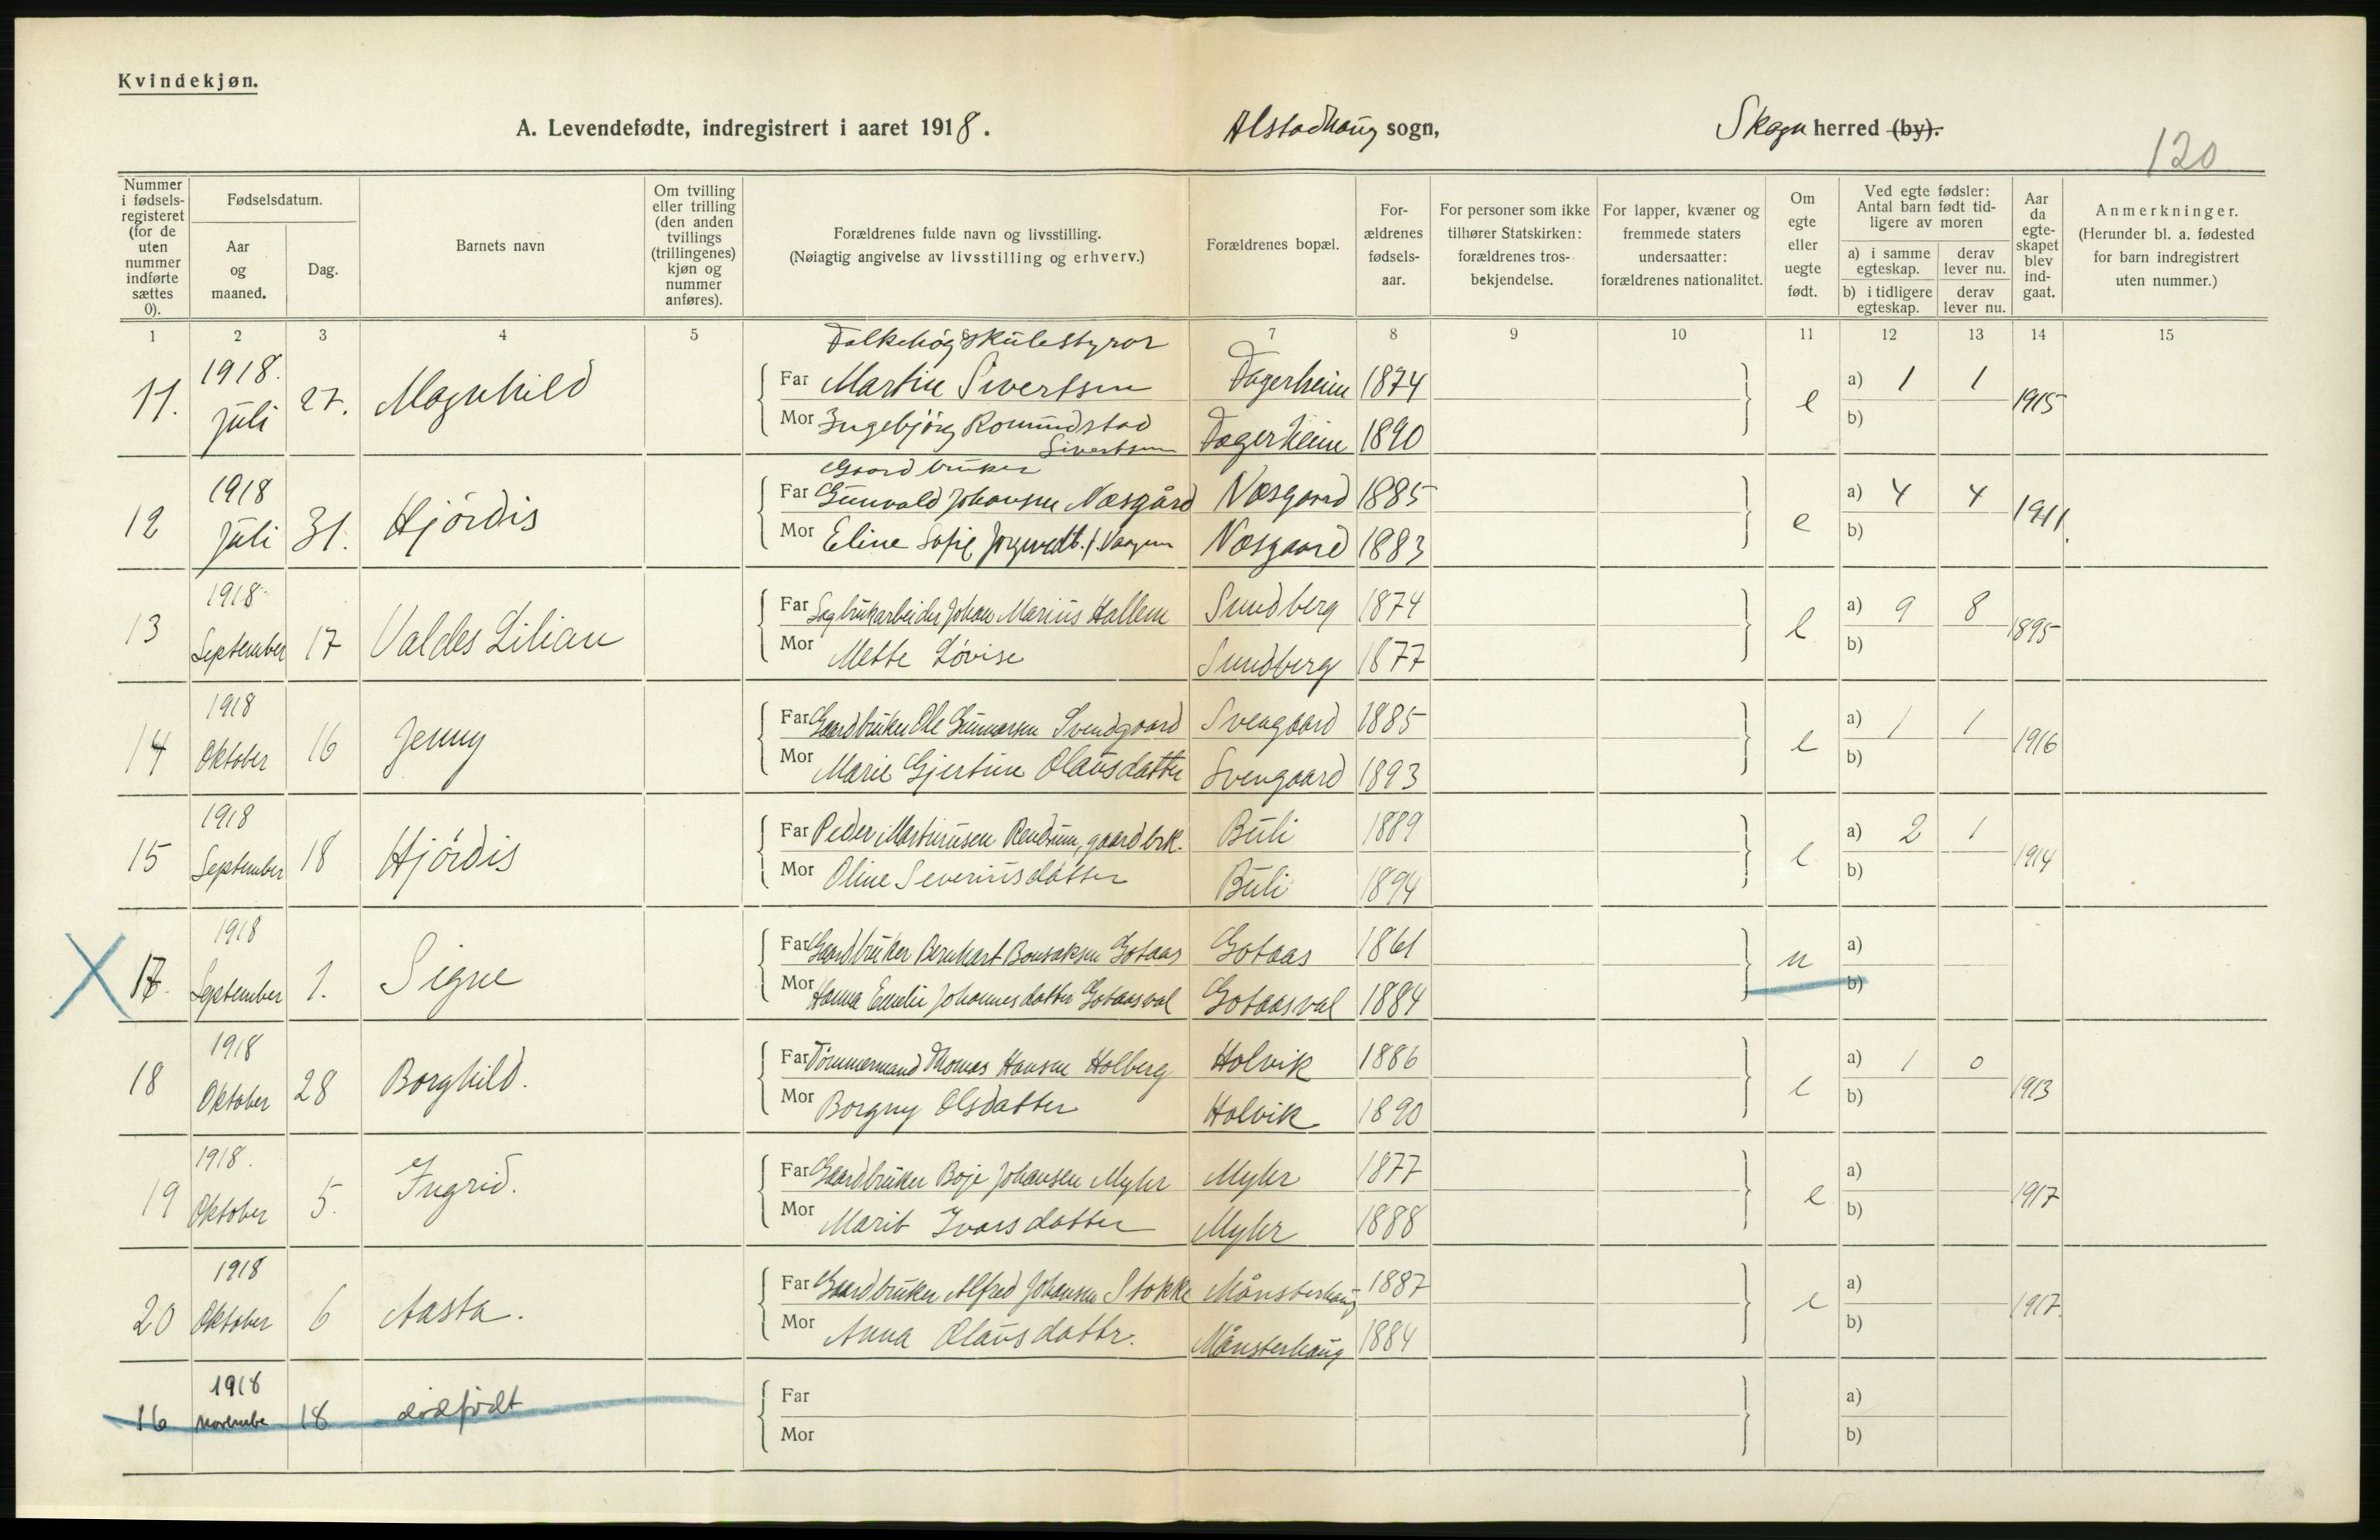 Kvindekjøn.
A. Levendefødte, indregistrert i aaret 1918. Alstadhaug sogn, Skogn herred (by).
120
Nummer i fødselsregisteret (for de uten nummer indførte sættes 0).
Fødselsdatum.
Aar og maaned.
Dag.
Barnets navn
Om tvilling eller trilling (den anden tvillings (trillingenes) kjøn og nummer anføres).
Forældrenes fulde navn og livsstilling.
(Nøiagtig angivelse av livsstilling og erhverv.)
Forældrenes bopæl.
Forældrenes fødselsaar.
For personer som ikke tilhører Statskirken: forældrenes trosbekjendelse.
For lapper, kvæner og fremmede staters undersaatter: forældrenes nationalitet.
Om egte eller uegte født.
Ved egte fødsler: Antal barn født tidligere av moren
a) i samme egteskap. derav lever nu.
b) i tidligere egteskap. derav lever nu.
Aar da egteskapet blev indgaat.
Anmerkninger.
(Herunder bl. a. fødested for barn indregistrert uten nummer.)
1 2 3 4 5 6 7 8 9 10 11 12 13 14 15
Folkehøgskulestyrar
11. 1918. Juli 27. Magnhild Far Martin Sivertsen Fagerheim 1874 e a) 1 1 1915
Mor Ingebjörg Romundstad Sivertsen Fagerheim 1890 b)
Gaardbruker
12 1918 Juli 31. Hjördis Far Gunvald Johansen Næsgård Næsgaard 1885 e a) 4 4 1911.
Mor Eline Sofie Næsgaard 1883 b)
13 1918 September 17 Valdes Lilian Far Sagbrukarbeider Johan Marius Hallem Sundberg 1874 e a) 9 8 1895
Mor Mette Lovise Sundberg 1877 b)
14 1918 Oktober 16 Jenny Far Gaardbruker Ole Gunnarsen Svendgaard Svengaard 1885 e a) 1 1 1916
Mor Marie Gjertine Olausdatter Svengaard 1893 b)
15 1918 September 18 Hjördis Far Peder Martinusen Rendum, gaardbrk. Buli 1889 e a) 2 1 1914
Mor Oline Severinsdatter Buli 1894 b)
17. 1918 September 1. Signe Far Gaardbruker Bernhart Bonsaksen Gotaas Gotaas 1861 u a)
Mor Hanna Emelie Johannesdatter Gotaasval Gotaasval 1884 b)
18 1918 Oktober 28 Borghild. Far Tömmermand Thomas Hansen Holberg Holvik 1886 e a) 1 0 1913
Mor Borgny Olsdatter Holvik 1890 b)
19 1918. Oktober 5. Ingrid. Far Gaardbruker Boje Johansen Myhr Myhr 1877 e a) 1917
Mor Marit Ivarsdatter Myhr 1888 b)
20 1918 Oktober 6 Aasta. Far Gaardbruker Alfred Johansen Stokke Månsterhaug 1887 e a) 1917.
Mor Anna Olausdattr. Månsterhaug 1884 b)
16 1918 novembe 18 dödfödt Far a)
Mor b)